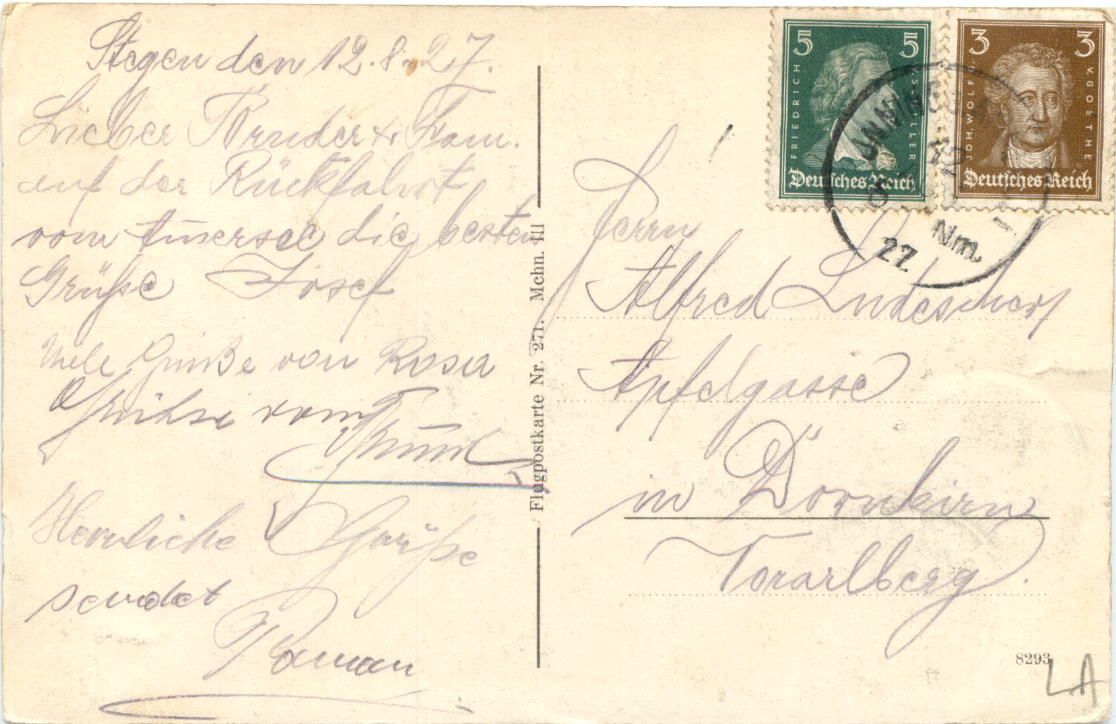 Stegen den 12.8.27.
Lieber Bruder & Fam.
auf der Rückfahrt
vom Ammersee die besten
Grüße Josef
Viele Grüße von Rosa
Grüße vom
Herrliche Grüße
sendet
Roman
Flugpostkarte Nr. 271. Mchn. III
5 5
FRIEDRICH V. SCHILLER
Deutsches Reich
3 3
JOH. WOLFG. V. GOETHE
Deutsches Reich
27
Nm.
Herrn
Alfred
Apfelgasse
in Dornbirn
Vorarlberg.
8293
LA